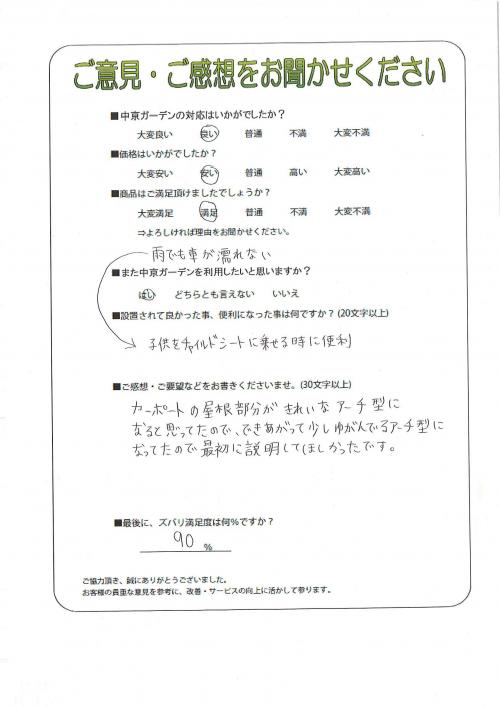 ご意見・ご感想をお聞かせください
■中京ガーデンの対応はいかがでしたか？
大変良い 良い 普通 不満 大変不満
■価格はいかがでしたか？
大変安い 安い 普通 高い 大変高い
■商品はご満足頂けましたでしょうか？
大変満足 満足 普通 不満 大変不満
⇒よろしければ理由をお聞かせください。
雨でも車が濡れない
■また中京ガーデンを利用したいと思いますか？
はい どちらとも言えない いいえ
■設置されて良かった事、便利になった事は何ですか？(20文字以上)
子供をチャイルドシートに乗せる時に便利
■ご感想・ご要望などをお書きくださいませ。(30文字以上)
カーポートの屋根部分がきれいなアーチ型に
なると思ってたので、できあがって少しゆがんでるアーチ型に
なってたので最初に説明してほしかったです。
■最後に、ズバリ満足度は何％ですか？
90 %
ご協力頂き、誠にありがとうございました。
お客様の貴重な意見を参考に、改善・サービスの向上に活かして参ります。